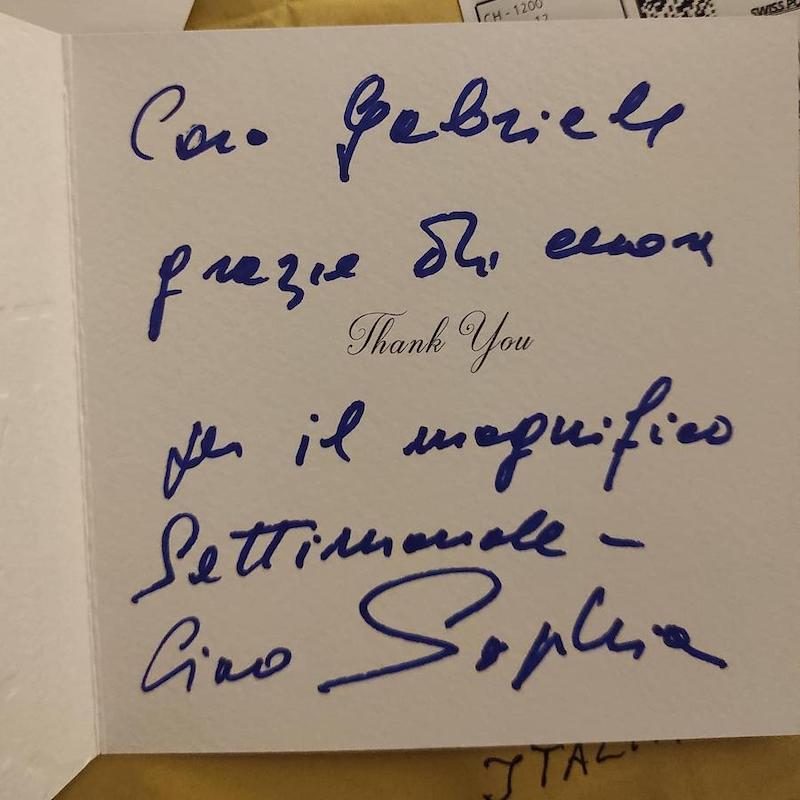 CH - 1200
12
SWISS P
Caro Gabriele
grazie di cuore
Thank You
per il magnifico
Settimanale -
Ciao Sophia
ITAL